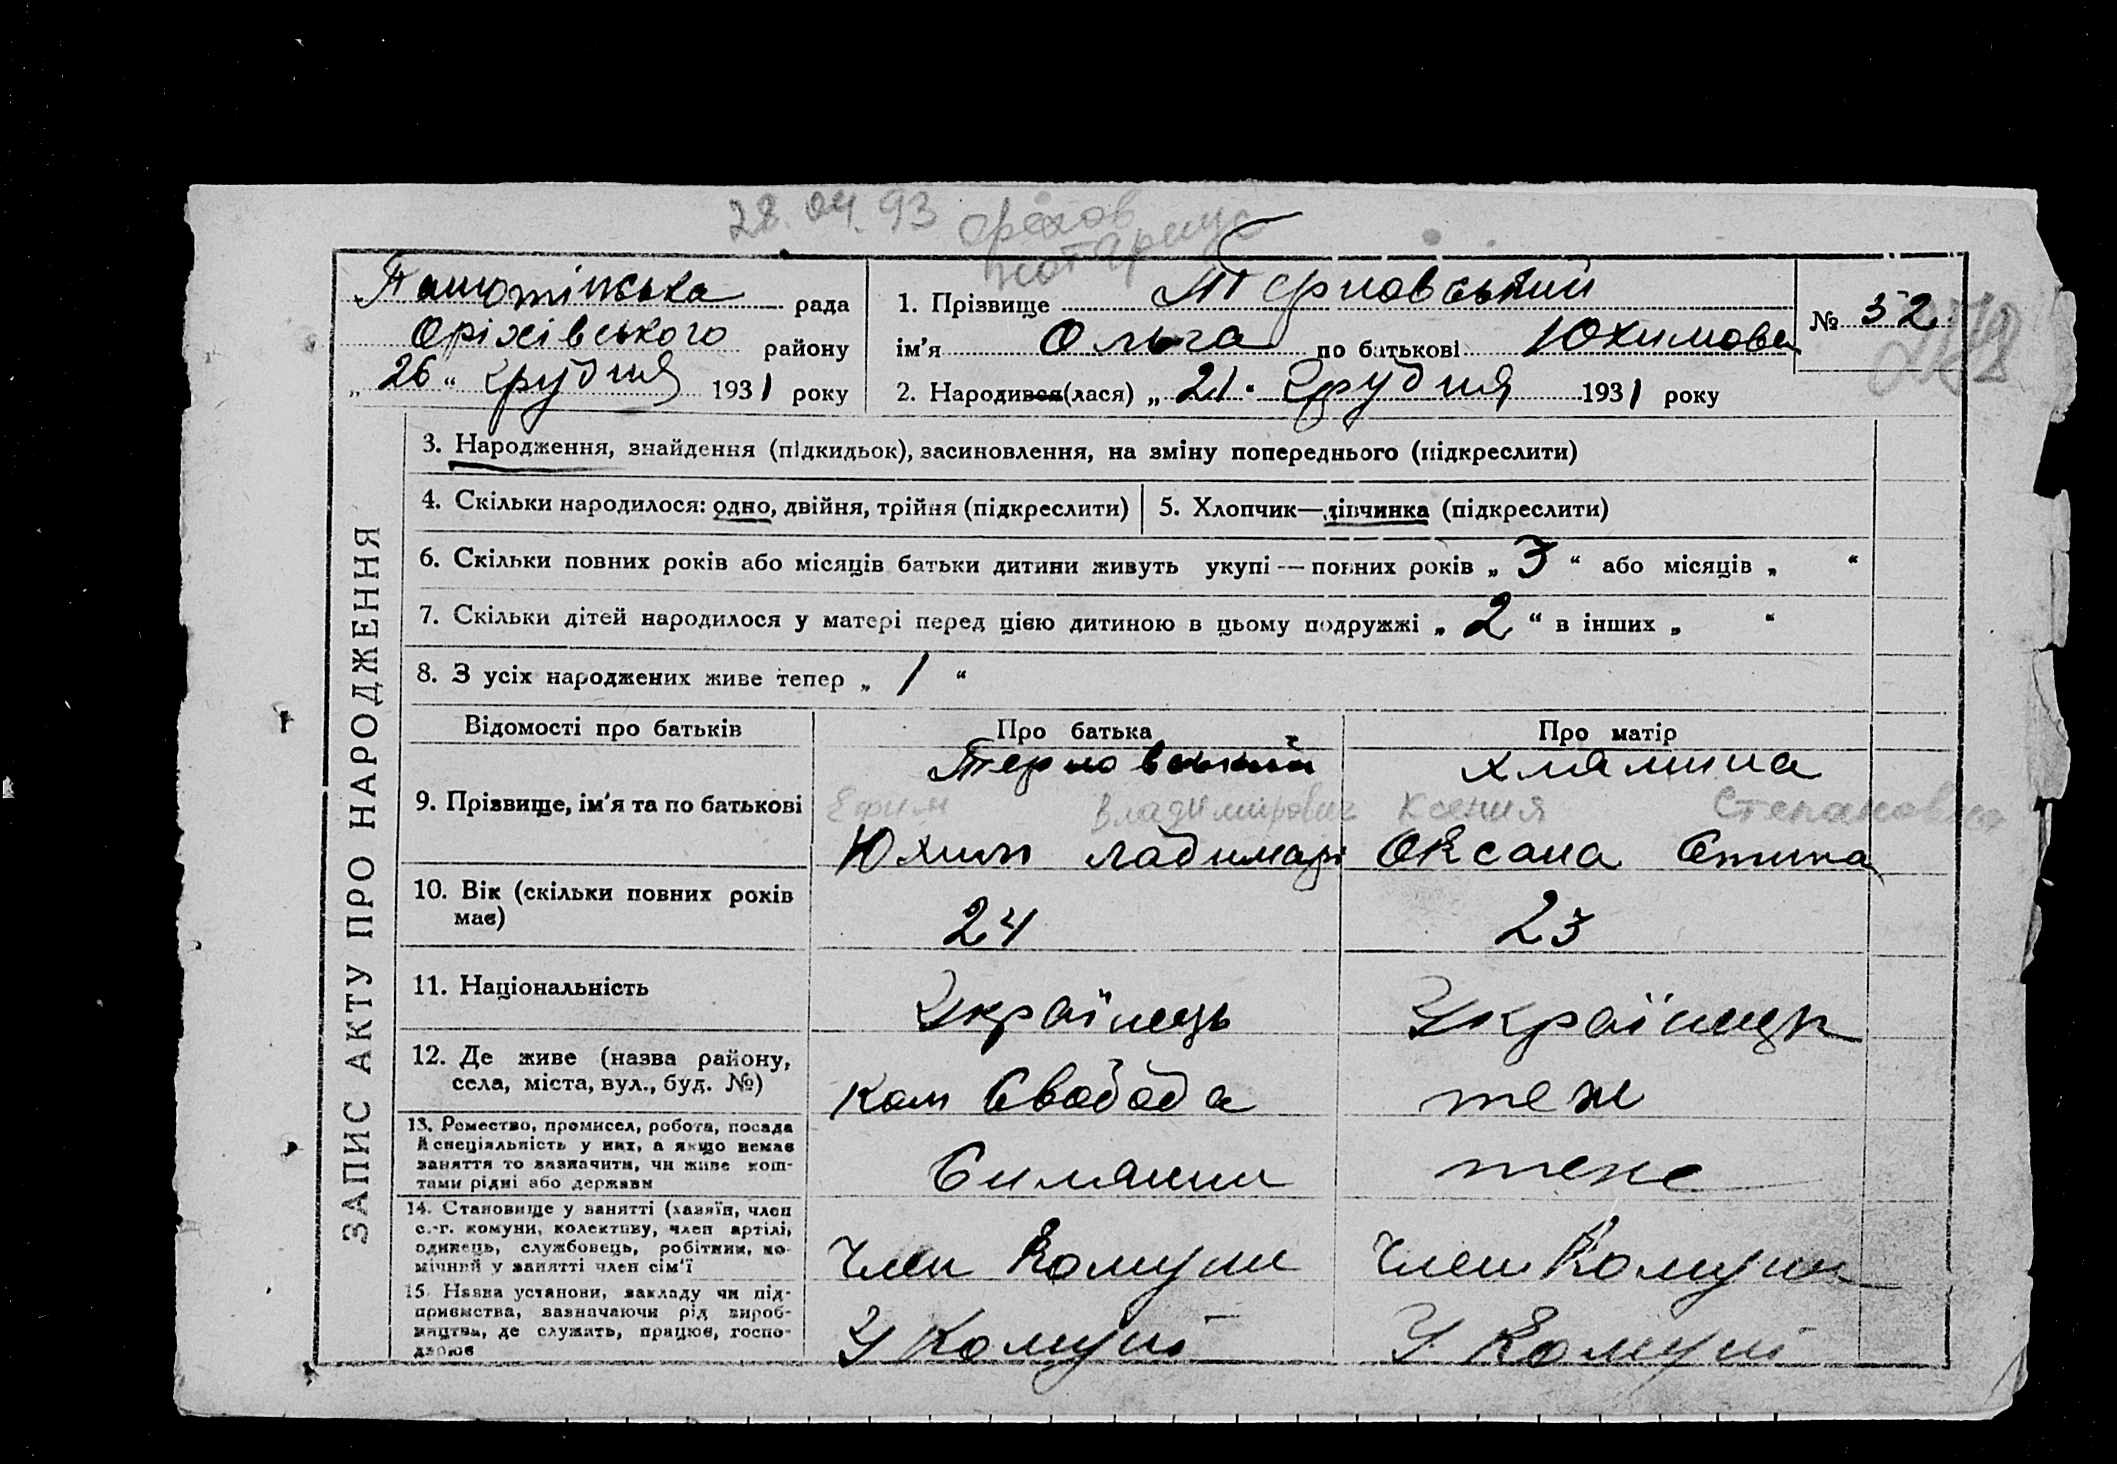 28.04.93 Орехов
нотариус
рада
Оріхівського району
„ 26 “ Грудня 1931 року
1. Прізвище Терновський
ім'я Ольга по батькові Юхимова
2. Народився(лася) „ 21. Грудня 1931 року
№ 52
ЗАПИС АКТУ ПРО НАРОДЖЕННЯ
3. Народження, знайдення (підкидьок), засиновлення, на зміну попереднього (підкреслити)
4. Скільки народилося: одно, двійня, трійня (підкреслити)
5. Хлопчик—дівчинка (підкреслити)
6. Скільки повних років або місяців батьки дитини живуть укупі — повних років „ 3 “ або місяців „ “
7. Скільки дітей народилося у матері перед цією дитиною в цьому подружжі „ 2 “ в інших „ “
8. З усіх народжених живе тепер „ 1 “
Відомості про батьків
Про батька
Про матір
9. Прізвище, ім'я та по батькові
Терновський
Ефим Владимирович
Юхим
Ксения Степановна
Оксана
10. Вік (скільки повних років
має)
24
23
11. Національність
Українець
12. Де живе (назва району,
села, міста, вул., буд. №)
Ком Свобода
теж
13. Ремество, промисел, робота, посада
й спеціяльність у них, а якщо немає
заняття то зазначити, чи живе кош-
тами рідні або держави
теж
14. Становище у занятті (хазяїн, член
с.-г. комуни, колективу, член артілі,
одинець, службовець, робітник, по-
мічний у занятті член сім'ї
Член Комуни
Член Комуни
15. Назва установи, закладу чи під-
приємства, зазначаючи рід вироб-
ництва, де служить, працює, госпо-
дарює
У Комуні
У Комуні